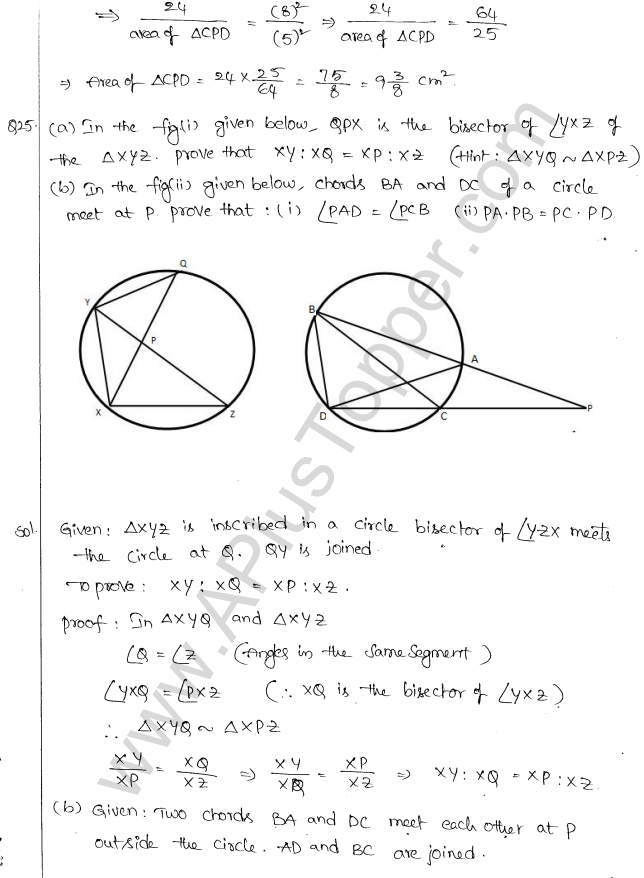 ⇒ 24 / area of ΔCPD = (8)² / (5)² ⇒ 24 / area of ΔCPD = 64 / 25
⇒ Area of ΔCPD = 24 × 25/64 = 75/8 = 9 3/8 cm².
Q25. (a) In the fig(i) given below, QPX is the bisector of ∠YXZ of
the ΔXYZ. prove that XY : XQ = XP : XZ (Hint : ΔXYQ ~ ΔXPZ)
(b) In the fig(ii) given below, chords BA and DC of a circle
meet at P. prove that : (i) ∠PAD = ∠PCB (ii) PA·PB = PC·PD.
Q
Y
P
X Z
B
A
D C P
www.APlusTopper.com
Sol. Given : ΔXYZ is inscribed in a circle bisector of ∠YZX meets
the circle at Q. QY is joined.
To prove : XY : XQ = XP : XZ.
Proof : In ΔXYQ and ΔXYZ
∠Q = ∠Z (Angles in the same segment)
∠YXQ = ∠PXZ (∴ XQ is the bisector of ∠YXZ)
∴ ΔXYQ ~ ΔXPZ
XY / XP = XQ / XZ ⇒ XY / XQ = XP / XZ ⇒ XY : XQ = XP : XZ.
(b) Given : Two chords BA and DC meet each other at P
outside the circle. AD and BC are joined.